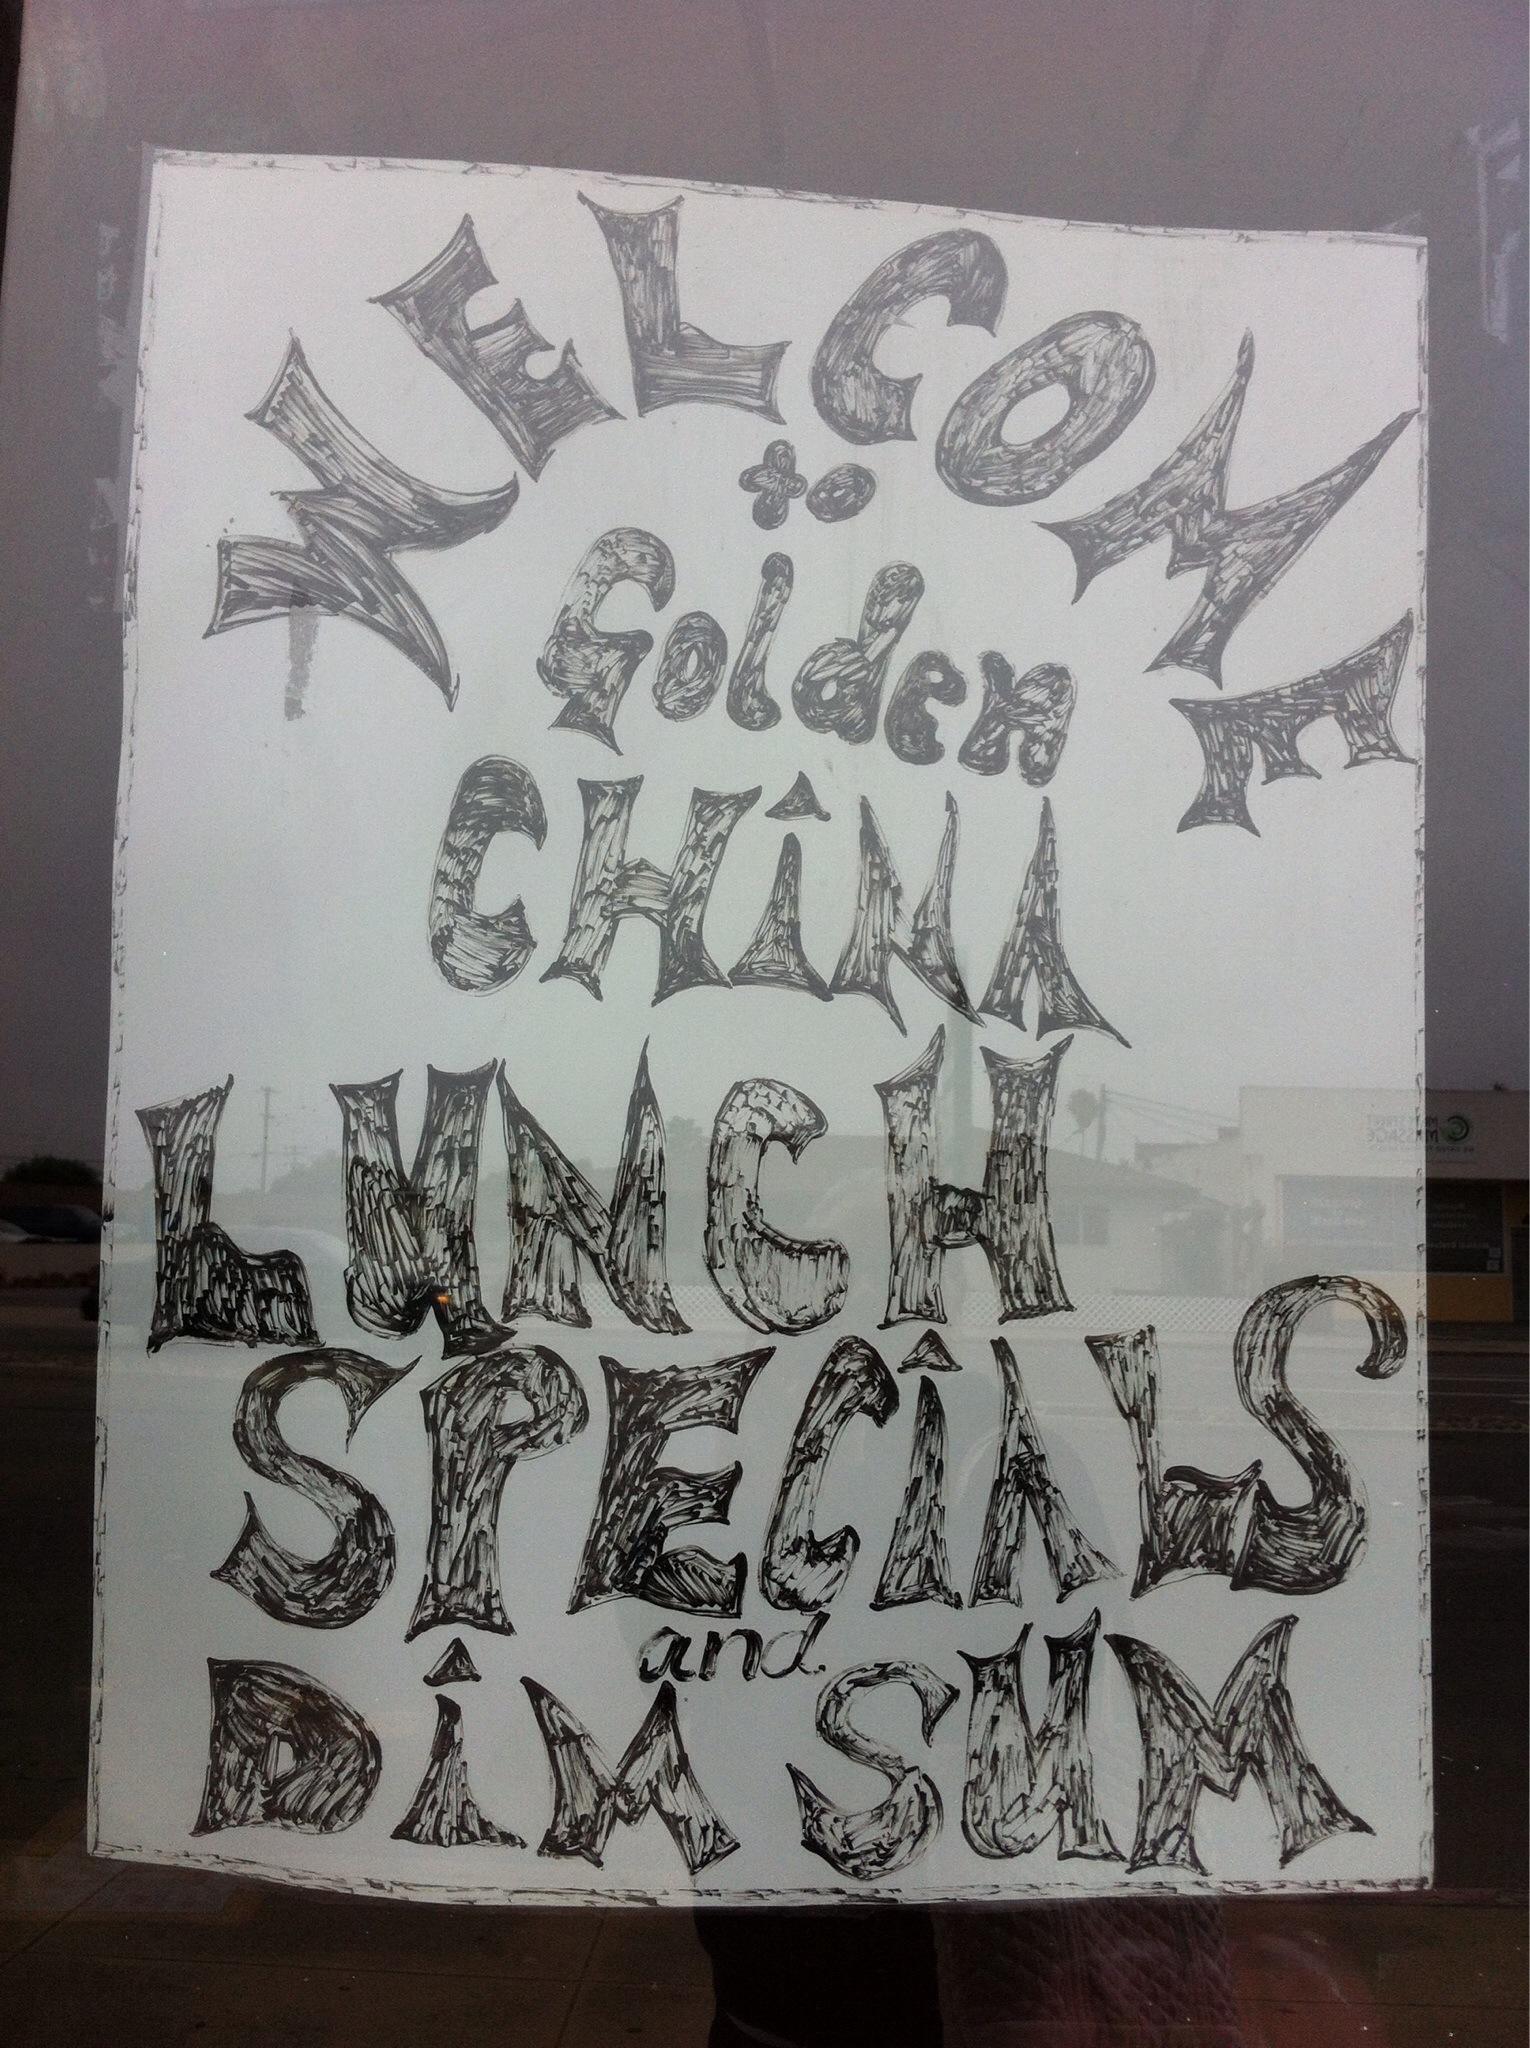 WELCOME
to
Golden
CHINA
LUNCH
SPECIALS
and
DIM SUM